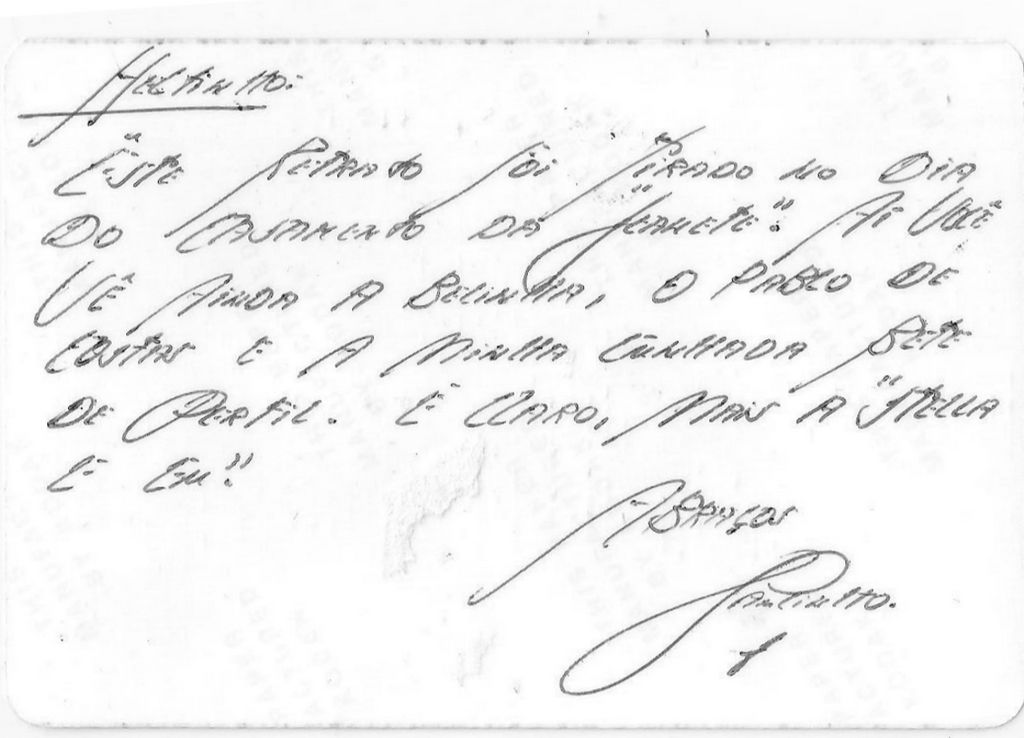 Heltinho:
Êste Retrato foi Tirado no Dia
do Casamento da "Jeanete". Aí Você
Vê Ainda a Belinha, o Pablo de
Costas e a Minha Cunhada Bete
de Perfil. É Claro, Mais a "Stella
e Eu".
Abraços
Paulinho.